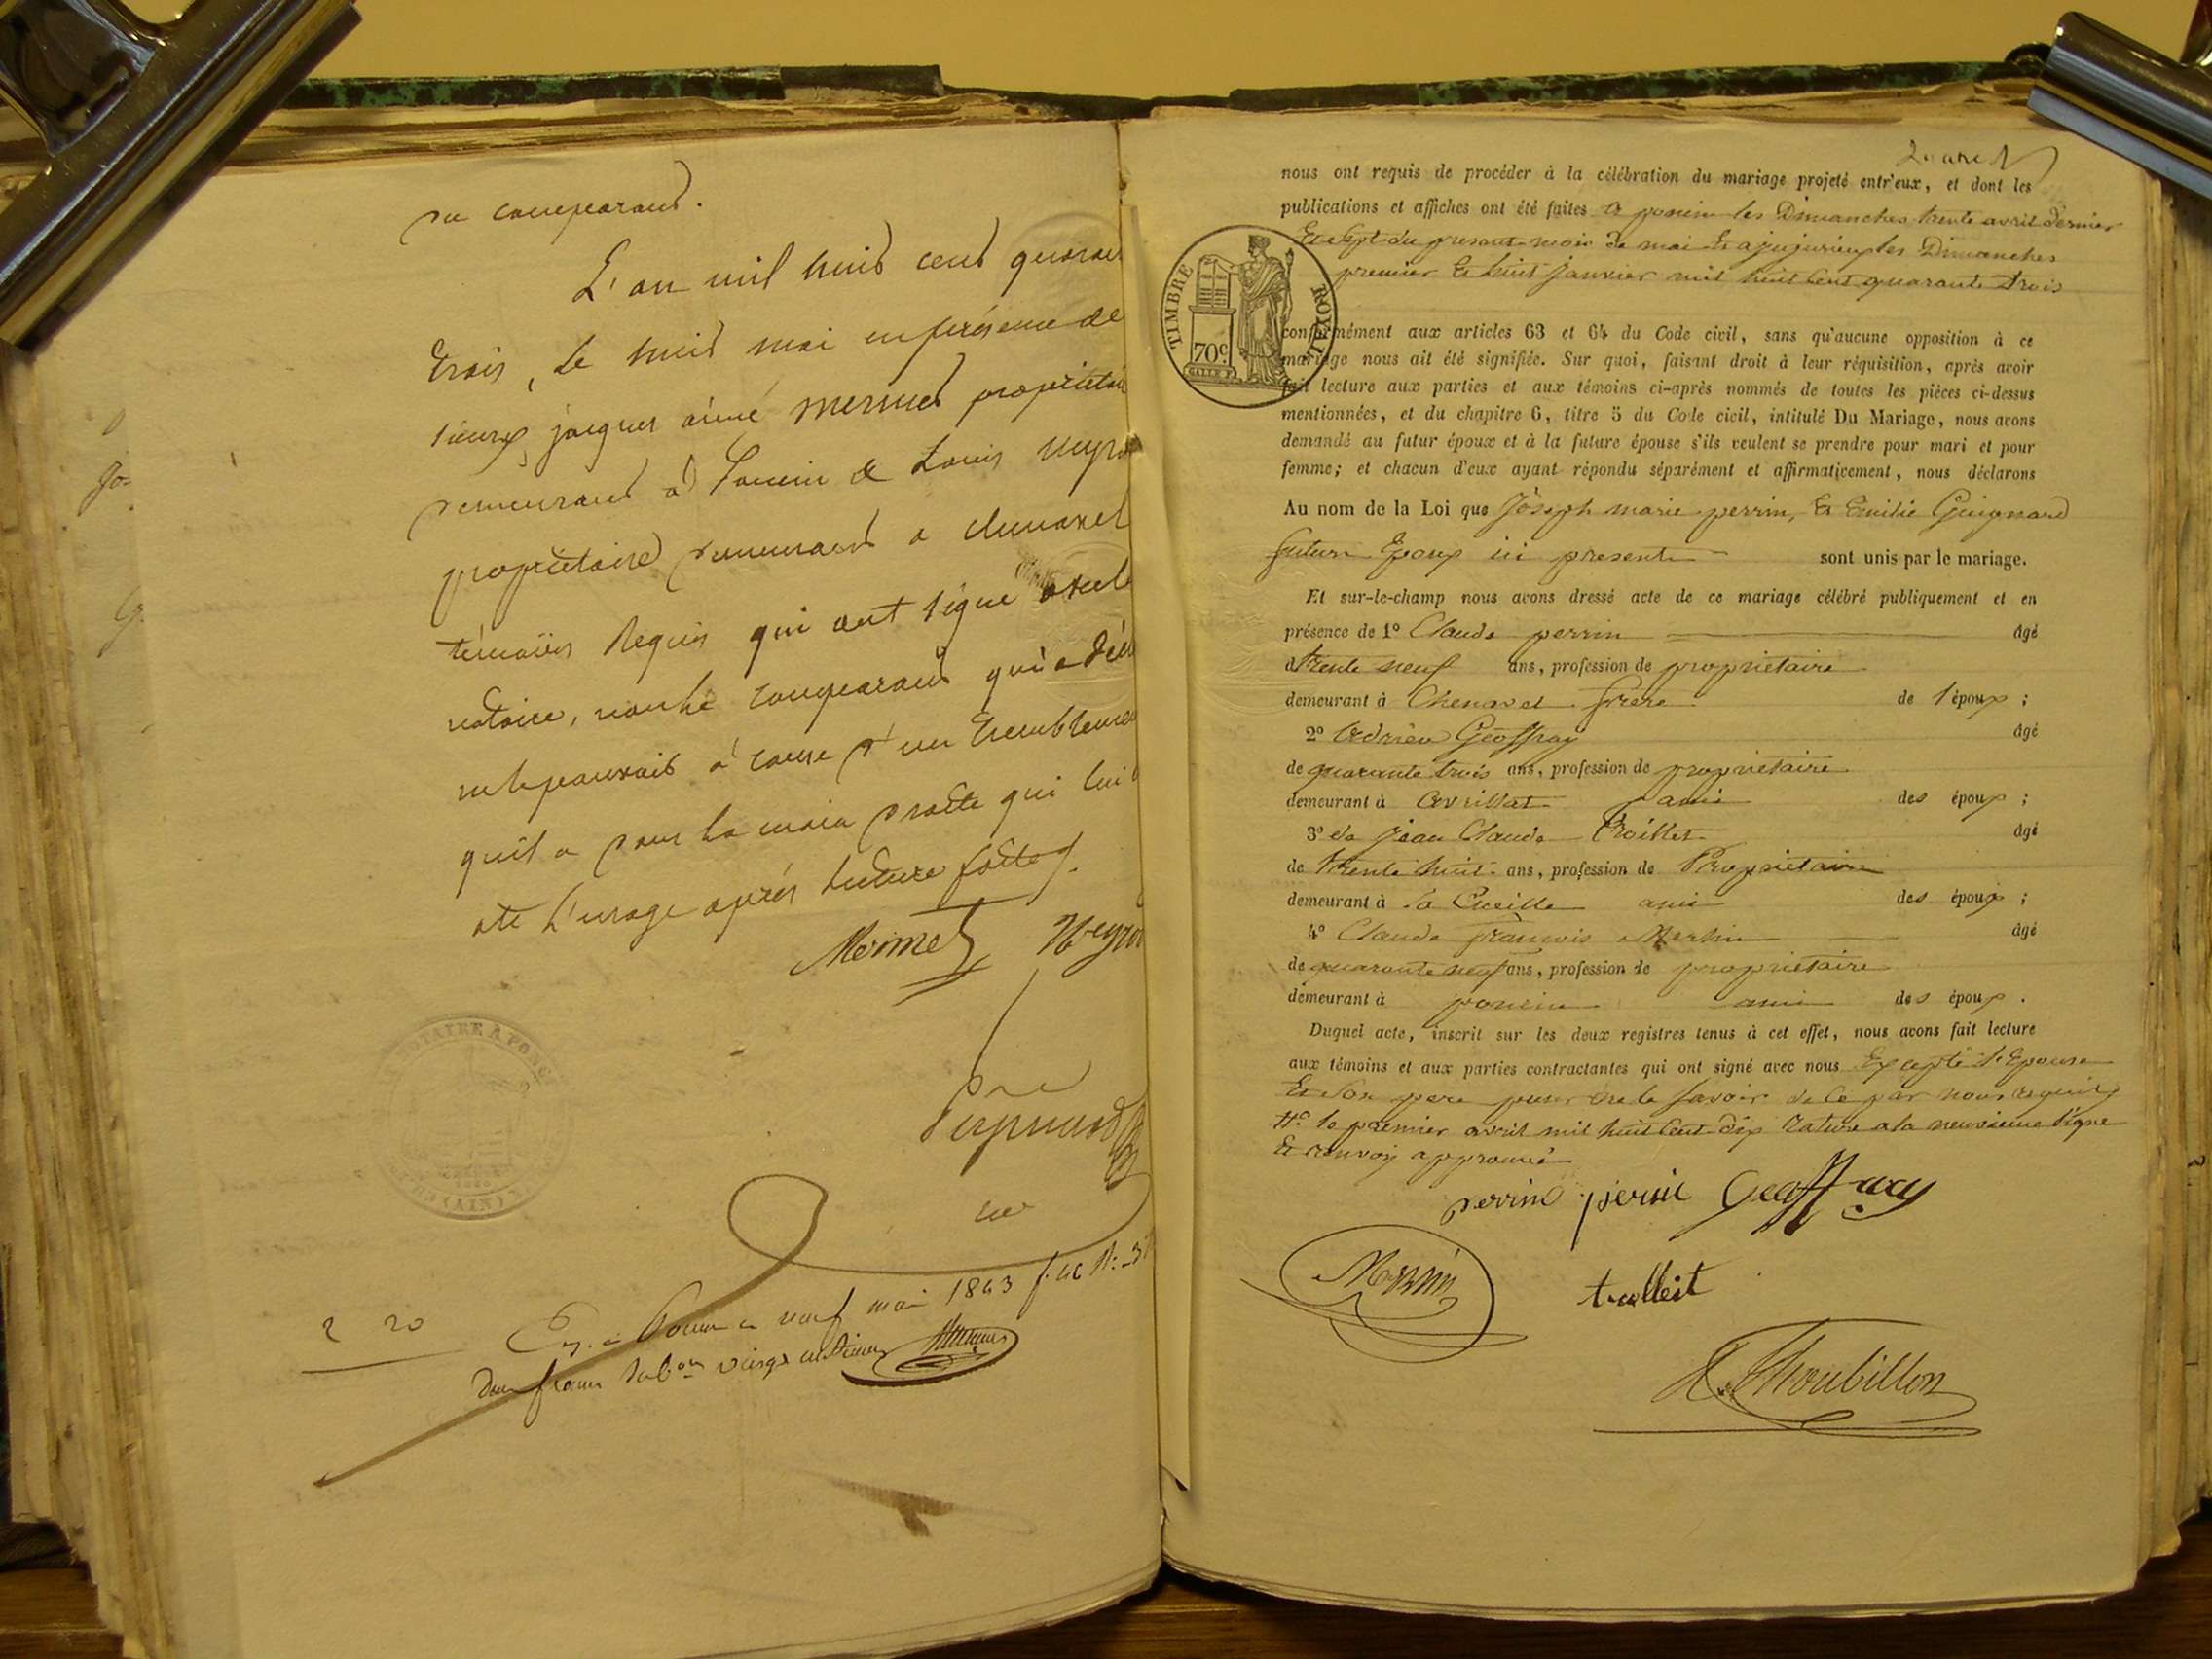 du comparant.
L'an mil huit cent quarante
trois, le huit mai en présence de
sieurs jacques aimé mermet propriétaire
demeurant à Poncin & Louis Neyro
propriétaire demeurant a chenavel
témoins Requis qui ont signé avec le
notaire, non le comparant qui a décl
ne le pouvoir à cause d'un tremblement
quil a dans la main droite qui lui
ote l'usage après lecture faite.
Mermet Neyro
NOTAIRE A PONCIN
(AIN)
2 20
En. à Poncin le neuf mai 1843 f. 46
Deux francs vingt centimes
nous ont requis de procéder à la célébration du mariage projeté entr'eux, et dont les
publications et affiches ont été faites a poncin les Dimanches trente avril dernier
Et Sept du present mois de mai Et a jujurieux les Dimanches
premier Et huit janvier mil huit Cent quarante trois
TIMBRE ROYAL
70c
conformément aux articles 63 et 64 du Code civil, sans qu'aucune opposition à ce
mariage nous ait été signifiée. Sur quoi, faisant droit à leur réquisition, après avoir
fait lecture aux parties et aux témoins ci-après nommés de toutes les pièces ci-dessus
mentionnées, et du chapitre 6, titre 5 du Code civil, intitulé Du Mariage, nous avons
demandé au futur époux et à la future épouse s'ils veulent se prendre pour mari et pour
femme; et chacun d'eux ayant répondu séparément et affirmativement, nous déclarons
Au nom de la Loi que Joseph marie perrin, Et Emilie Guignard
futurs Epoux ici presents sont unis par le mariage.
Et sur-le-champ nous avons dressé acte de ce mariage célébré publiquement et en
présence de 1º Claude perrin âgé
de trente neuf ans, profession de propriétaire
demeurant à Chenavel frere de l'époux ;
2º Adrien Geoffray âgé
de quarante trois ans, profession de propriétaire
demeurant à Avrillat ami des époux ;
3º de Jean Claude Trollet âgé
de trente huit ans, profession de Propriétaire
demeurant à la Cueille ami des époux ;
4º Claude françois Merlin âgé
de quarante neuf ans, profession de propriétaire
demeurant à poncin ami des époux .
Duquel acte, inscrit sur les deux registres tenus à cet effet, nous avons fait lecture
aux témoins et aux parties contractantes qui ont signé avec nous Excepté l'Epouse
Et Son pere pour ne le Savoir de Ce par nous requis
le premier avril mil huit Cent dix rature a la neuvieme ligne
Et renvoy approuvé
perrin perrin Geoffray
trolleit
Thoubillon